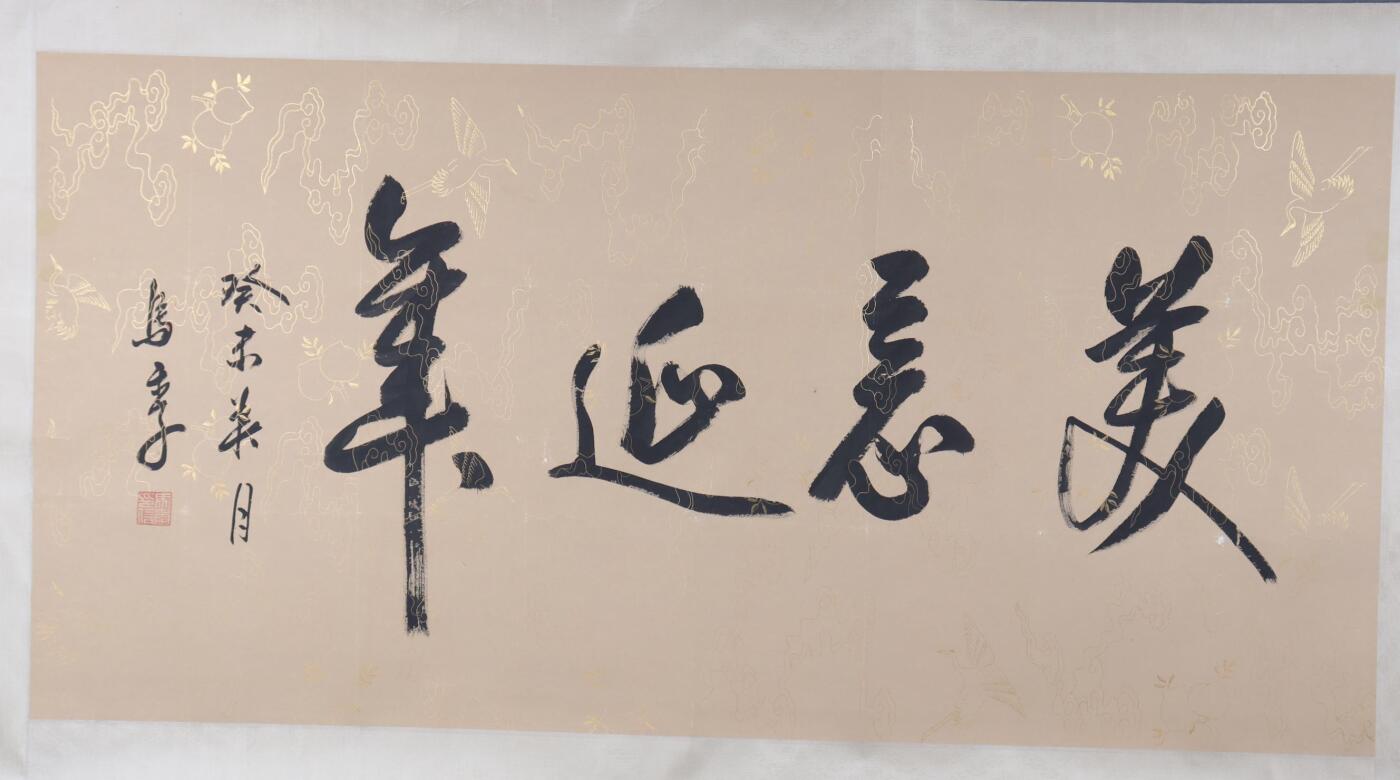 美意延年
癸未葵月